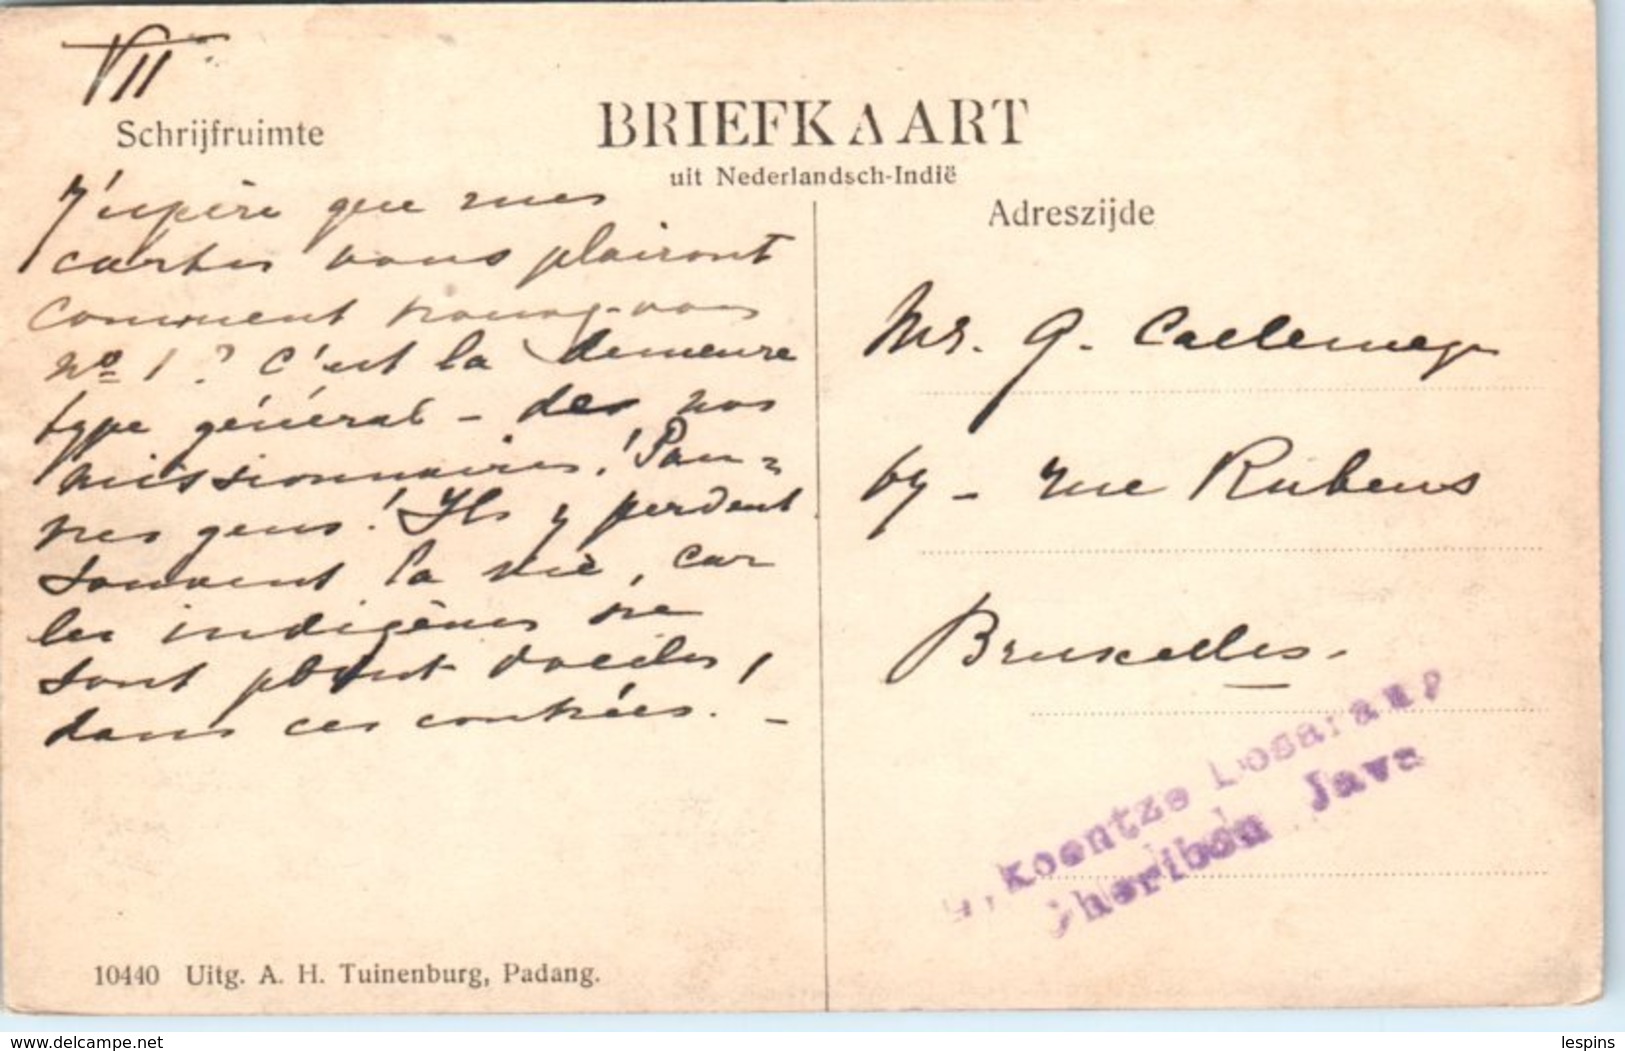 VII
Schrijfruimte
BRIEFKAART
uit Nederlandsch-Indië
Adreszijde
J'espère que mes
cartes vous plairont
Comment trouvez-vous
nº 1? C'est la demeure
type général - des nos
missionnaires! Pau-
vres gens! Ils y perdent
souvent la vie, car
les indigènes ne
sont point dociles,
dans ces contrées. -
Mr. G.
67 - rue Rubens
Bruxelles.
Koentze Losarang
Cheribon Java
10440 Uitg. A. H. Tuinenburg, Padang.
www.delcampe.net
lespins